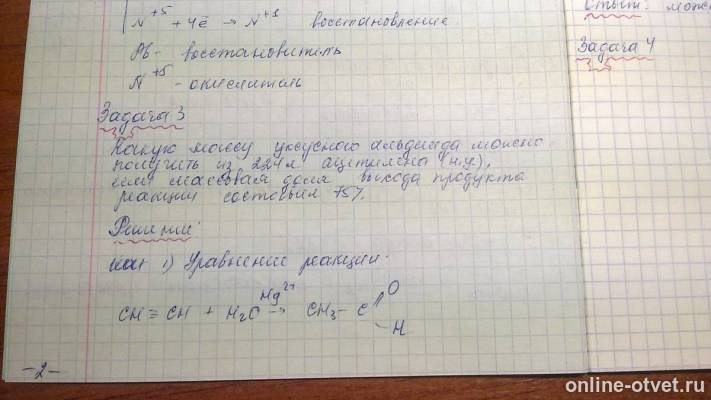 N⁺⁵ + 4ē → N⁺¹ восстановление
Pb - восстановитель
N⁺⁵ - окислитель
Задача 3
Какую массу уксусного альдегида можно
получить из 224л ацетилена (н.у),
если массовая доля выхода продукта
реакции составил 75%.
Решение:
1) Уравнение реакции:
CH ≡ CH + H₂O Hg²⁺ → CH₃ - C O
- H
-2-
Ответ: мож
Задача 4
online-otvet.ru